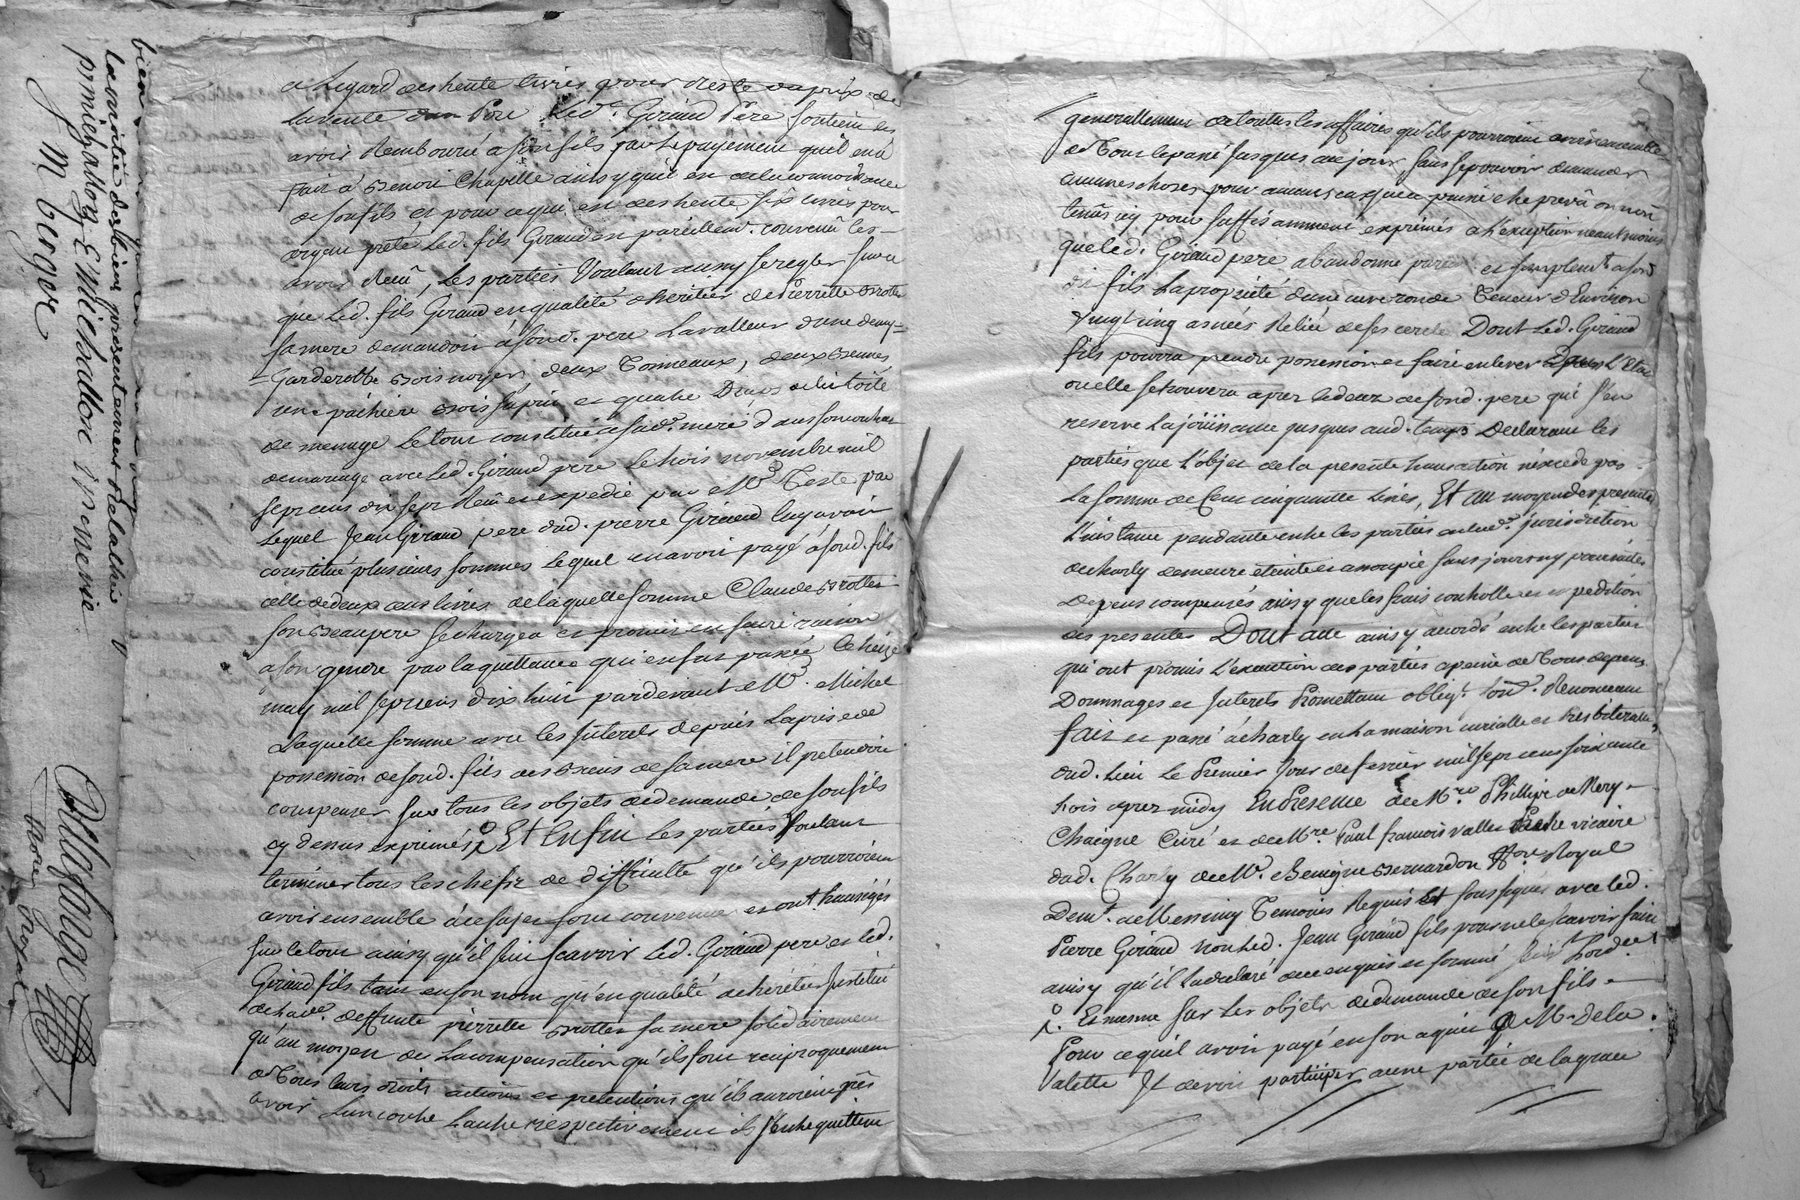 a Legard des trente livres pour reste du prix de
la vente dun Pore Led.t Giraud Pere soutient les
avoir Rembourcé a son fils par le payement quil en a
fait a Benoit Chapelle ainsy quil est de la connoissance
de son fils et pour ce qui est des trente six livres pour
argent preté Led. fils Giraud est pareillemt. convenu les
avoir Reçu, Les parties Voulant aussy se regler sur ce
que Led. fils Giraud en qualité dheritier de Pierrette Brottet
sa mere demandoit a sond. pere La valleur dune demy-
Garderobbe Bois noyer deux Tonneaux, deux Bennes
une pachiere Bois sapin et quatre Draps de lit toile
de menage Le tout constitué a sad. mere dans son contrat
de mariage avec Led. Giraud pere Le trois novembre mil
sept cens dix sept Reçu et expedié par Me. Teste par
Lequel Jean Giraud pere dud. pierre Giraud luy avoit
constitué plusieurs sommes Lequel en avoit payé a sond. fils
celle de deux cens livres de laquelle somme Claude Brottet
son Beaupere se chargea et promit en faire raison
a son gendre par la quittance qui en fut passée le treize
may mil sept cens dix huit pardevant Me. Michel
Laquelle somme avec les Interets depuis La prise de
possession de sond. fils des Biens de sa mere il pretendoit
compenser sur tous les objets de demande de son fils
cy dessus exprimés, Et Enfin Les parties Voulant
terminer tous les chefs de difficulté qu'ils pourroient
avoir ensemble a ce sujet sont convenues et ont transigés
sur le tout ainsy qu'il suit scavoir Led. Giraud pere et led.
Giraud fils tant en son nom qu'en qualité dheritier Institué
de lad. deffunte pierrette Brottet sa mere solidairement
qu'au moyen de La compensation qu'ils font reciproquement
de Tous leurs droits actions et pretentions qu'ils auroient pûs
avoir Lun contre Lautre respectivement ils s'entrequittent
generallement de touttes les affaires qu'ils pourroient avoir ensemble
de Tout le passé Jusques a ce jour, sans se pouvoir demander
aucunes choses pour aucunes causes que ce puisse etre prevû ou non
tenûs icy pour suffisamment exprimés a l'exception neantmoins
que led. Giraud pere abandonne purem. et simplemt. a sond
dit fils La proprieté dune cuve ronde Teneur d'Environ
vingt cinq asnées Reliée de ses cercle Dont Led. Giraud
fils pourra prendre possession et faire enlever dans L'Etat
ou elle se trouvera apres Le deces de sond. pere qui s'en
reserve La joüissance jusques aud. temps Declarant les
parties que L'objet de la presente transaction n'excede pas
La somme de Cent cinquante Livres, Et au moyen des presentes
L'instance pendante entre les parties en lad. jurisdiction
de charly demeure eteinte et assoupie sans pouvoir y poursuites
depens compensés ainsy que les frais controlle et expedition
des presentes Dont acte ainsy accordé entre les parties
qui ont promis L'execution des parties a peine de Tous depens
Dommages et Interets Promettant obligt. soum. Renonceant
fait et passé a charly en La maison curialle et Presbiteralle
dud. Lieu Le Premier Jour de fevrier mil sept cens soixante
trois apres midy En Presence de Mre. Phillipe de Mery
Chaigne Curé et de Mre. Paul francois Valles Pretre vicaire
dud. Charly de Me. Benigne Bernardon Nore. Royal
Demt. a Messimy Temoins Requis et soussignés avec led.
Pierre Giraud non Led. Jean Giraud fils pour ne le scavoir faire
ainsy qu'il La declaré de ce enquis et sommé suivt. Lord.ce
Et mesme sur Les objets de demande de son fils
Pour ce qu'il avoit payé en son aquit a Mr. de la
Valette Et devoir participer a une partie de la grace
bien
la moitié des biens presentement Relachés
premiegalloz E Mielsallon i
M Verger
Nore. Royal